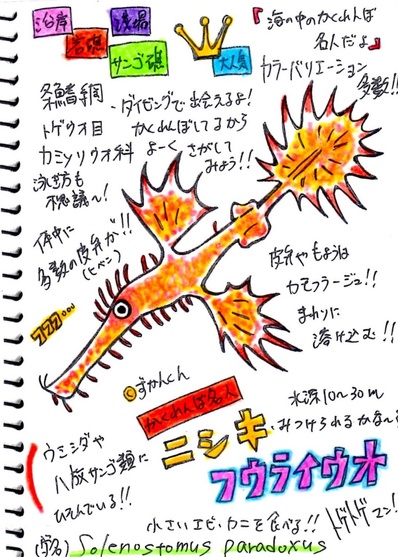 沿岸
浅場
岩礁
サンゴ礁
大人気
『海の中のかくれんぼ
名人だよ』
カラーバリエーション
多数!!
条鰭綱
トゲウオ目
カミソリウオ科
泳ぎ方も
不思議〜!
・ダイビングで出会えるよ!
かくれんぼしてるから
よーくさがして
みよう!!
体中に
多数の皮弁が!!
(ヒベン)
皮弁やもようは
カモフラージュ!!
まわりに
溶け込む!!
©ずかんくん
かくれんぼ名人
ニシキ
フウライウオ
水深10〜30m
みつけられるかな〜
ウミシダや
八放サンゴ類に
ひそんでいる!!
小さいエビ・カニを食べる!!
トゲトゲマン!
(学名) Solenostomus paradoxus